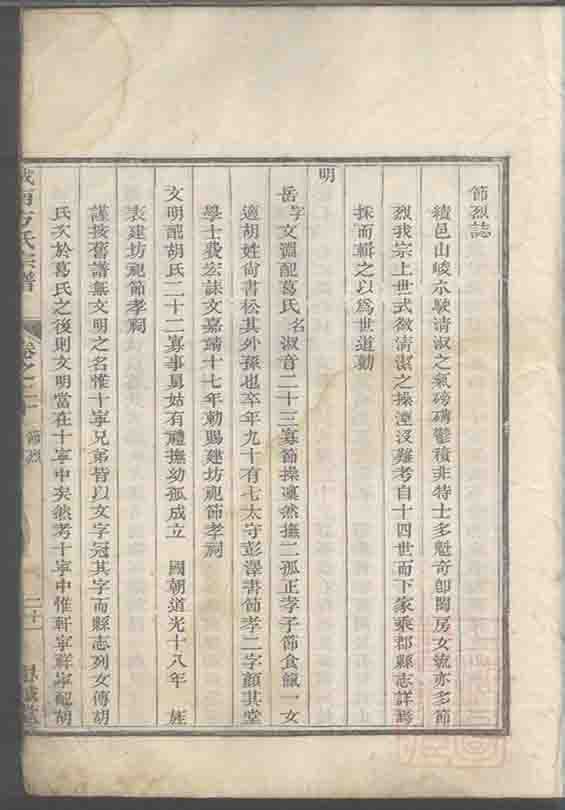 節烈誌
績邑山峻水駛清淑之氣磅礡鬱積非特士多魁奇卽閨房女流亦多節
烈我宗上世式微清潔之操湮沒難考自十四世而下家乘郡縣志詳焉
採而輯之以爲世道勸
明
岳字文淵配葛氏名淑音二十三寡節操凜然撫二孤正孝子節食餼一女
適胡姓尙書松其外孫也卒年九十有七太守彭澤書節孝二字顏其堂
學士費宏誄文嘉靖十七年勅賜建坊祀節孝祠
文明配胡氏二十二寡事舅姑有禮撫幼孤成立 國朝道光十八年 旌
表建坊祀節孝祠
謹按舊譜無文明之名惟十寧兄弟皆以文字冠其字而縣志列女傳胡
氏次於葛氏之後則文明當在十寧中矣然考十寧中惟軒寧祥寧配胡
城南方氏宗譜 卷之二十 節烈